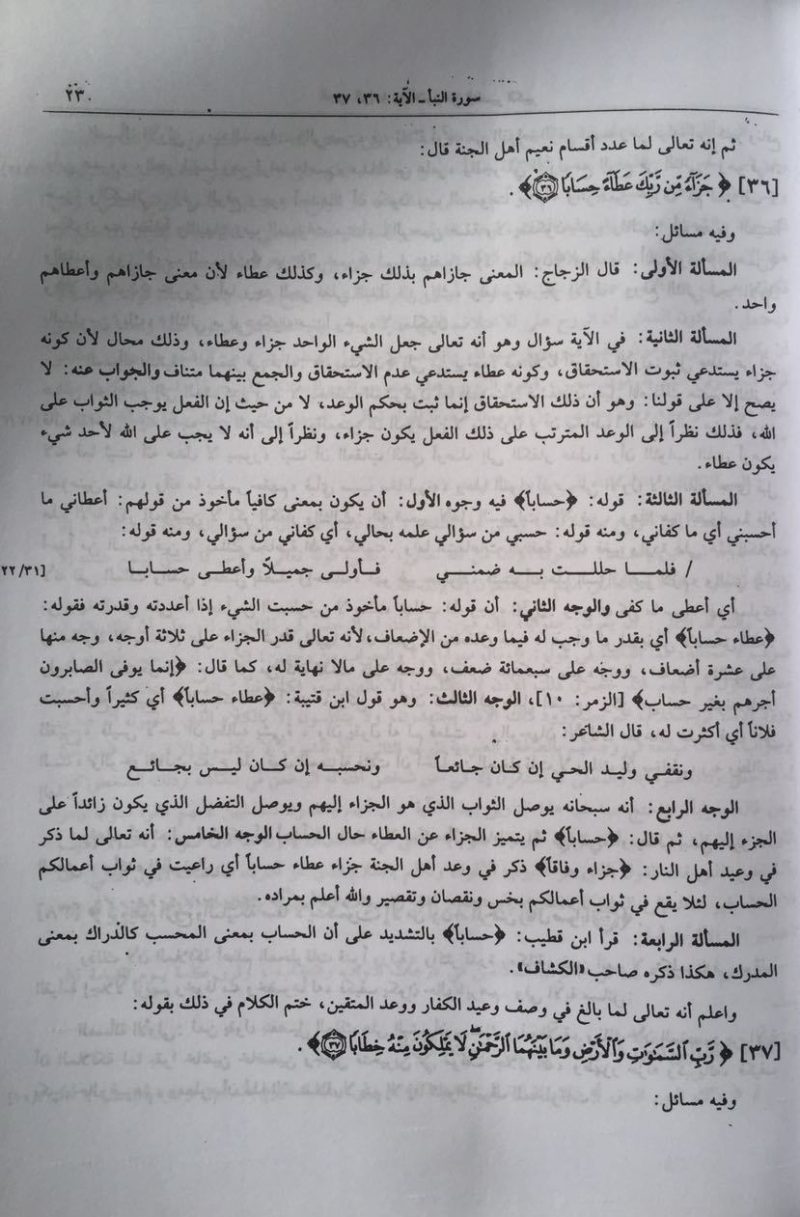 سورة النبأ ـ الآية: ٣٦، ٣٧
٢٣
ثم إنه تعالى لما عدد أقسام نعيم أهل الجنة قال:
[٣٦] ﴿ جَزَآءً مِّن رَّبِّكَ عَطَآءً حِسَابًا ٣٦﴾ .
وفيه مسائل:
المسألة الأولى: قال الزجاج: المعنى جازاهم بذلك جزاء، وكذلك عطاء لأن معنى جازاهم وأعطاهم
واحد.
المسألة الثانية: في الآية سؤال وهو أنه تعالى جعل الشيء الواحد جزاء وعطاء، وذلك محال لأن كونه
جزاء يستدعي ثبوت الاستحقاق، وكونه عطاء يستدعي عدم الاستحقاق والجمع بينهما متناف والجواب عنه: لا
يصح إلا على قولنا: وهو أن ذلك الاستحقاق إنما ثبت بحكم الوعد، لا من حيث إن الفعل يوجب الثواب على
الله، فذلك نظراً إلى الوعد المترتب على ذلك الفعل يكون جزاء، ونظراً إلى أنه لا يجب على الله لأحد شيء
يكون عطاء.
المسألة الثالثة: قوله: ﴿حساباً﴾ فيه وجوه الأول: أن يكون بمعنى كافياً مأخوذ من قولهم: أعطاني ما
أحسبني أي ما كفاني، ومنه قوله: حسبي من سؤالي علمه بحالي، أي كفاني من سؤالي، ومنه قوله:
/ فلمـا حللـت بـه ضمنـي فـأولى جميلاً وأعطى حسابـا [٢٢/٣١
أي أعطى ما كفى والوجه الثاني: أن قوله: حساباً مأخوذ من حسبت الشيء إذا أعددته وقدرته فقوله:
﴿عطاء حساباً﴾ أي بقدر ما وجب له فيما وعده من الإضعاف، لأنه تعالى قدر الجزاء على ثلاثة أوجه، وجه منها
على عشرة أضعاف، ووجه على سبعمائة ضعف، ووجه على مالا نهاية له، كما قال: ﴿إنما يوفى الصابرون
أجرهم بغير حساب﴾ [الزمر: ١٠]، الوجه الثالث: وهو قول ابن قتيبة: ﴿عطاء حساباً﴾ أي كثيراً وأحسبت
فلاناً أي أكثرت له، قال الشاعر:
ونقفـي وليد الحي إن كان جـائعـاً ونحسبـه إن كـان ليـس بجـائـع
الوجه الرابع: أنه سبحانه يوصل الثواب الذي هو الجزاء إليهم ويوصل التفضل الذي يكون زائداً على
الجزء إليهم، ثم قال: ﴿حساباً﴾ ثم يتميز الجزاء عن العطاء حال الحساب الوجه الخامس: أنه تعالى لما ذكر
في وعيد أهل النار: ﴿جزاء وفاقاً﴾ ذكر في وعد أهل الجنة جزاء عطاء حساباً أي راعيت في ثواب أعمالكم
الحساب، لئلا يقع في ثواب أعمالكم بخس ونقصان وتقصير والله أعلم بمراده.
المسألة الرابعة: قرأ ابن قطيب: ﴿حساباً﴾ بالتشديد على أن الحساب بمعنى المحسب كالدراك بمعنى
المدرك، هكذا ذكره صاحب «الكشاف».
واعلم أنه تعالى لما بالغ في وصف وعيد الكفار ووعد المتقين، ختم الكلام في ذلك بقوله:
[٣٧] ﴿ رَّبِّ ٱلسَّمَٰوَٰتِ وَٱلۡأَرۡضِ وَمَا بَيۡنَهُمَا ٱلرَّحۡمَٰنِۖ لَا يَمۡلِكُونَ مِنۡهُ خِطَابًا ٣٧﴾ .
وفيه مسائل: